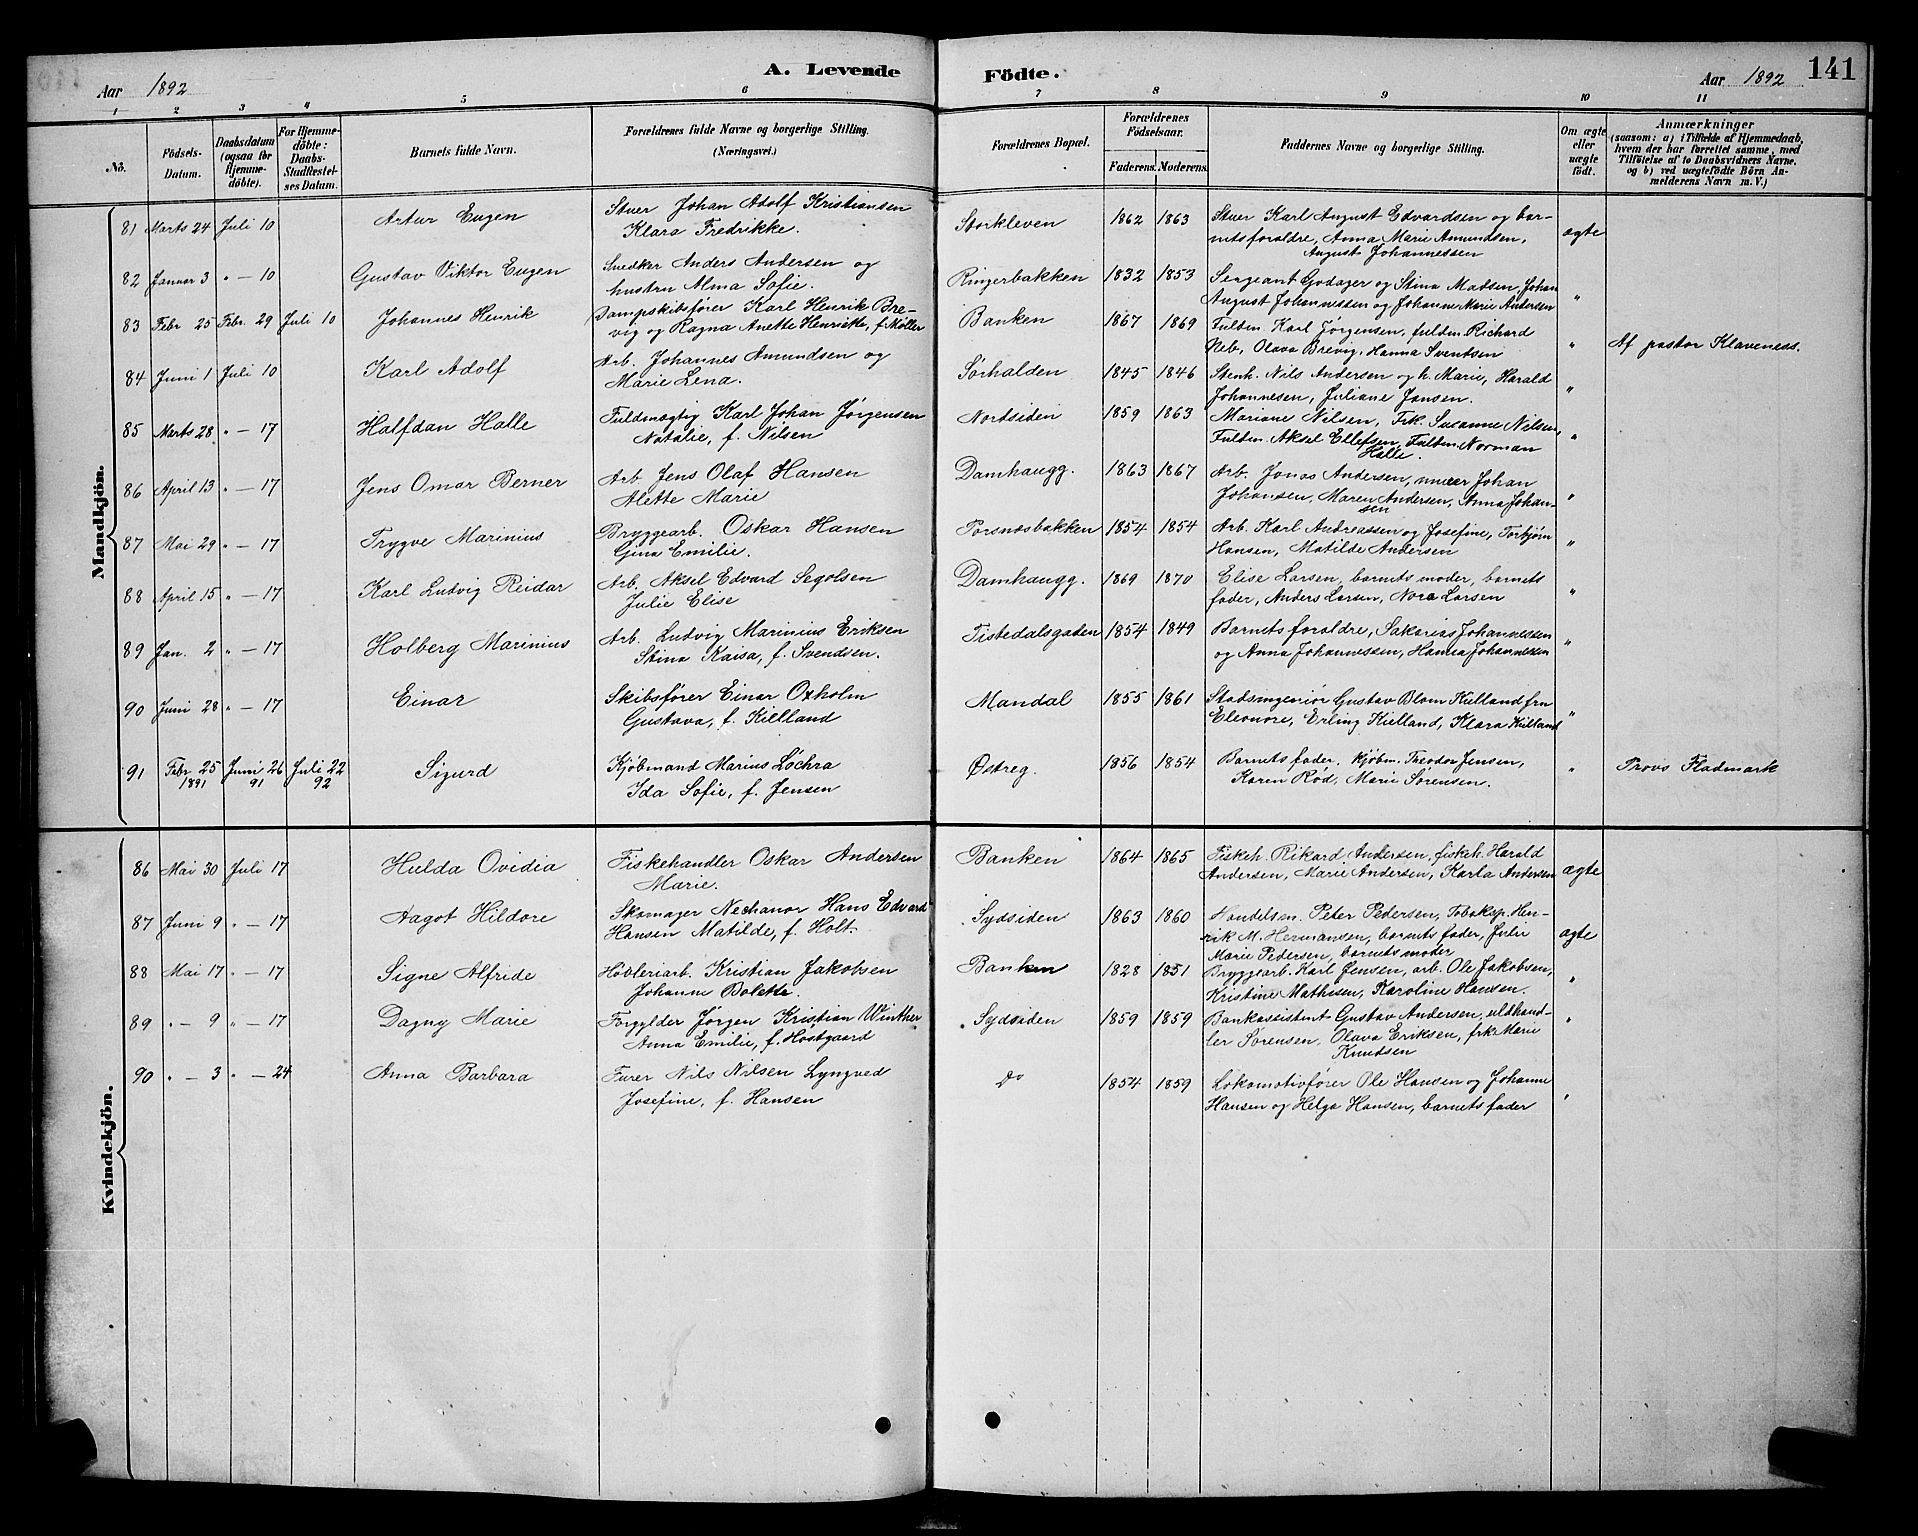 A. Levende Födte.
141
Aar 1892
Aar 1892
1 2 3 4 5 6 7 8 9 10 11
No.
Födsels-Datum.
Daabsdatum (ogsaa for Hjemmedöbte).
For Hjemmedöbte: Daabs-Stadfestelses Datum.
Barnets fulde Navn.
Forældrenes fulde Navne og borgerlige Stilling. (Næringsvei.)
Forældrenes Bopæl.
Forældrenes Födselsaar.
Faderens. Moderens.
Faddernes Navne og borgerlige Stilling.
Om ægte eller uægte födt.
Anmærkninger
(saasom: a) i Tilfælde af Hjemmedaab, hvem der har forrettet samme, med Tilföielse af to Daabsvidners Navne, og b) ved uægtefödte Börn Anmelderens Navn m. V.)
Mandkjön.
81 Marts 24 Juli 10 Artur Eugen Stuer Johan Adolf Kristiansen
Klara Fredrikke. Storkleven 1862 1863 Stuer Karl August Edvardsen og bar-
netsforaldre, Anna Marie Amundsen,
August Johannessen ægte
82 Januar 3 " — 10 Gustav Viktor Eugen Snedker Anders Andersen og
hustru Alma Sofie. Ringerbakken 1832 1853 Sergeant Godager og Stina Madsen, Johan
August Johannessen og Johanne Marie Andersen "
83 Febr. 25 Febr. 29 Juli 10 Johannes Henrik Dampskibsfører Karl Henrik Bre-
vig og Ragna Anette Henriette, f. Møller Banken 1867 1869 Fuldm. Karl Jørgensen, fuldm. Richard
Reb, Olava Brevig, Hanna Sventsen " Af pastor Klaveness.
84 Juni 1 Juli 10 Karl Adolf Arb. Johannes Amundsen og
Marie Lena. Sørhalden 1845 1846 Stenh. Nils Andersen og h. Marie, Harald
Johannesen, Juliane Jansen. "
85 Marts 28 " — 17 Halfdan Halle Fuldmægtig Karl Johan Jørgensen
Natalie, f. Nilsen Nordsiden 1859 1863 Mariane Nilsen, Frk. Susanne Nilsen,
Fuldm. Aksel Ellefsen, Fuldm. Norman
Halle. "
86 April 13 " — 17 Jens Omar Berner Arb. Jens Olaf Hansen
Alette Marie Damhaugg. 1863 1867 Arb. Jonas Andersen, murer Johan
Johansen, Maren Andersen, Anna Johan-
sen "
87 Mai 29 " — 17 Trygve Marinius Bryggearb. Oskar Hansen
Gina Emilie. Porsnæsbakken 1854 1854 Arb. Karl Andreassen og Josefine, Torbjørn
Hansen, Matilde Andersen "
88 April 15 " — 17 Karl Ludvig Reidar Arb. Aksel Edvard Segolsen
Julie Elise Damhaugg. 1869 1870 Elise Larsen, barnets moder, barnets
fader, Anders Larsen, Nora Larsen "
89 Jan. 2 " — 17 Holberg Marinius Arb. Ludvig Marinius Eriksen
Stina Kaisa, f. Svendsen. Tistedalsgaden 1854 1849 Barnets foraldre, Sakarias Johannessen
og Anna Johannessen, Hanna Johannessen "
90 Juni 28 " — 17 Einar Skibsfører Einar Oxholm
Gustava, f. Kielland Mandal 1855 1861 Stadsingeniør Gustav Blom Kielland fru
Eleonore, Erling Kielland, Klara Kielland "
91 Febr. 25 1891 Juni 26 91 Juli 22 92 Sigurd Kjøbmand Marius Løchra
Ida Sofie, f. Jensen Østreg. 1856 1854 Barnets fader, kjøbm. Theodor Jensen,
Karen Rød, Marie Sørensen. " Provs Fladmark
Kvindekjön.
86 Mai 30 Juli 17 Hulda Ovidia Fiskehandler Oskar Andersen
Marie. Banken 1864 1865 Fiskeh. Rikard Andersen, fiskeh. Harald
Andersen, Marie Andersen, Karla Andersen ægte
87 Juni 9 " — 17 Aagot Hildore Skomager Nechanor Hans Edvard
Hansen Matilde, f. Holt. Sydsiden 1863 1860 Handelsm. Peter Pedersen, Tobaksp. Hen-
rik M. Hermansen, barnets fader, Julie
Marie Pedersen, barnets moder ægte
88 Mai 17 " — 17 Signe Alfride Høvleriarb. Kristian Jakobsen
Johanne Bolette. Banken 1828 1851 Bryggearb. Karl Jensen, arb. Ole Jakobsen,
Kristine Mathisen, Karoline Hansen. "
89 " — 9 " — 17 Dagny Marie Forgylder Jørgen Kristian Winther
Anna Emilie, f. Høstgaard Sydsiden 1859 1859 Bankassistent Gustav Andersen, uldhand-
ler Sørensen, Olava Eriksen, frk. Marie
Knudsen "
90 " — 3 " — 24 Anna Barbara Furer Nils Nilsen Lyngved
Josefine, f. Hansen Do 1854 1859 Lokomotivfører Ole Hansen og Johanne
Hansen og Helga Hansen, barnets fader "